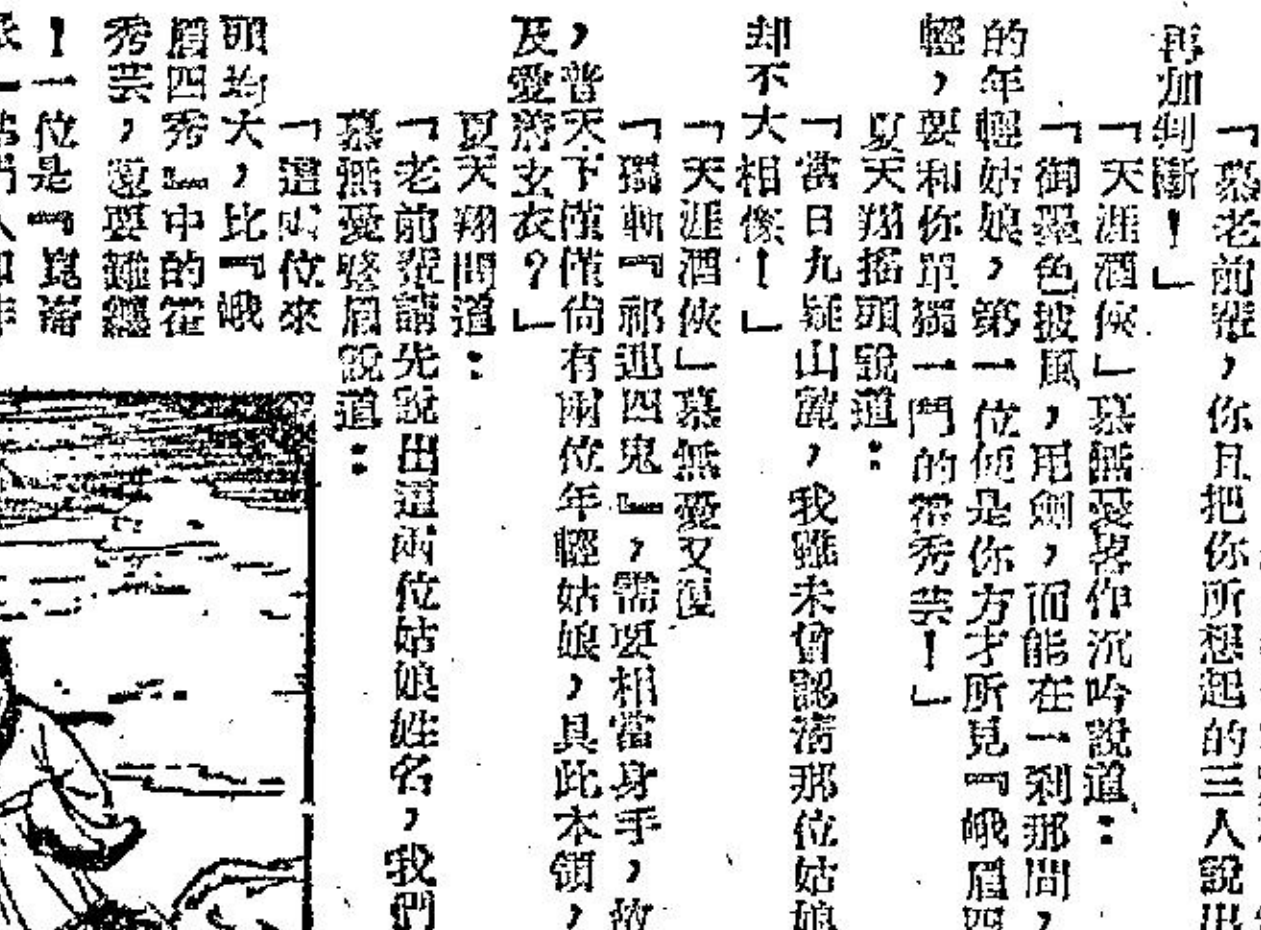 「慕老前輩，你且把你所想起的三人說出
再加判斷！」
「天涯酒俠」慕無憂畧作沉吟說道：
「御墨色披風，用劍，而能在一剎那間，
的年輕姑娘，第一位便是你方才所見『峨眉四
輕，要和你單獨一鬥的霍秀芸！」
夏天翔搖頭說道：
「當日九疑山麓，我雖未曾認清那位姑娘
却不大相像！」
「天涯酒俠」慕無憂又復
「獨斬『祁連四鬼』，需要相當身手，故
，普天下僅僅尚有兩位年輕姑娘，具此本領，
及愛着玄衣？」
夏天翔問道：
「老前輩請先說出這兩位姑娘姓名，我們
慕無憂整眉說道：
「這兩位來
頭均大，比『峨
眉四秀』中的霍
秀芸，還要難纏
！一位是『崑崙